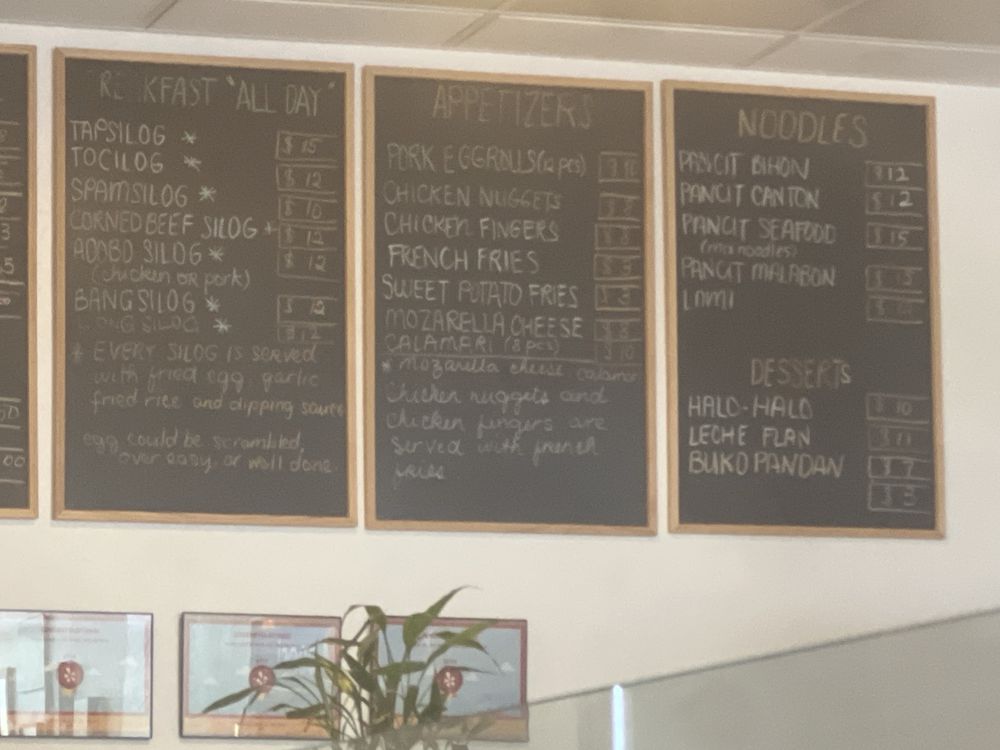 KFAST "ALL DAY"
TAPSILOG * $15
TOCILOG * $12
SPAMSILOG * $10
CORNED BEEF SILOG * $12
ADOBO SILOG * $12
(chicken OR pork)
BANGSILOG * $12
SILOG * $12
* EVERY SILOG IS served
with fried egg, garlic
fried rice and dipping sauce
egg could be scrambled,
over easy, or well done.
APPETIZERS
PORK EGGROLLS (12 pcs)
CHICKEN NUGGETS
CHICKEN FINGERS
FRENCH FRIES
SWEET POTATO FRIES
MOZARELLA CHEESE
CALAMARI (8 pcs) $10
* mozarella cheese calamari
Chicken nuggets and
chicken fingers are
served with french
fries
NOODLES
PANCIT BIHON $12
PANCIT CANTON $12
PANCIT SEAFOOD $15
(mix noodles)
PANCIT MALABON
LOMI
DESSERTS
HALO-HALO $10
LECHE FLAN
BUKO PANDAN $7